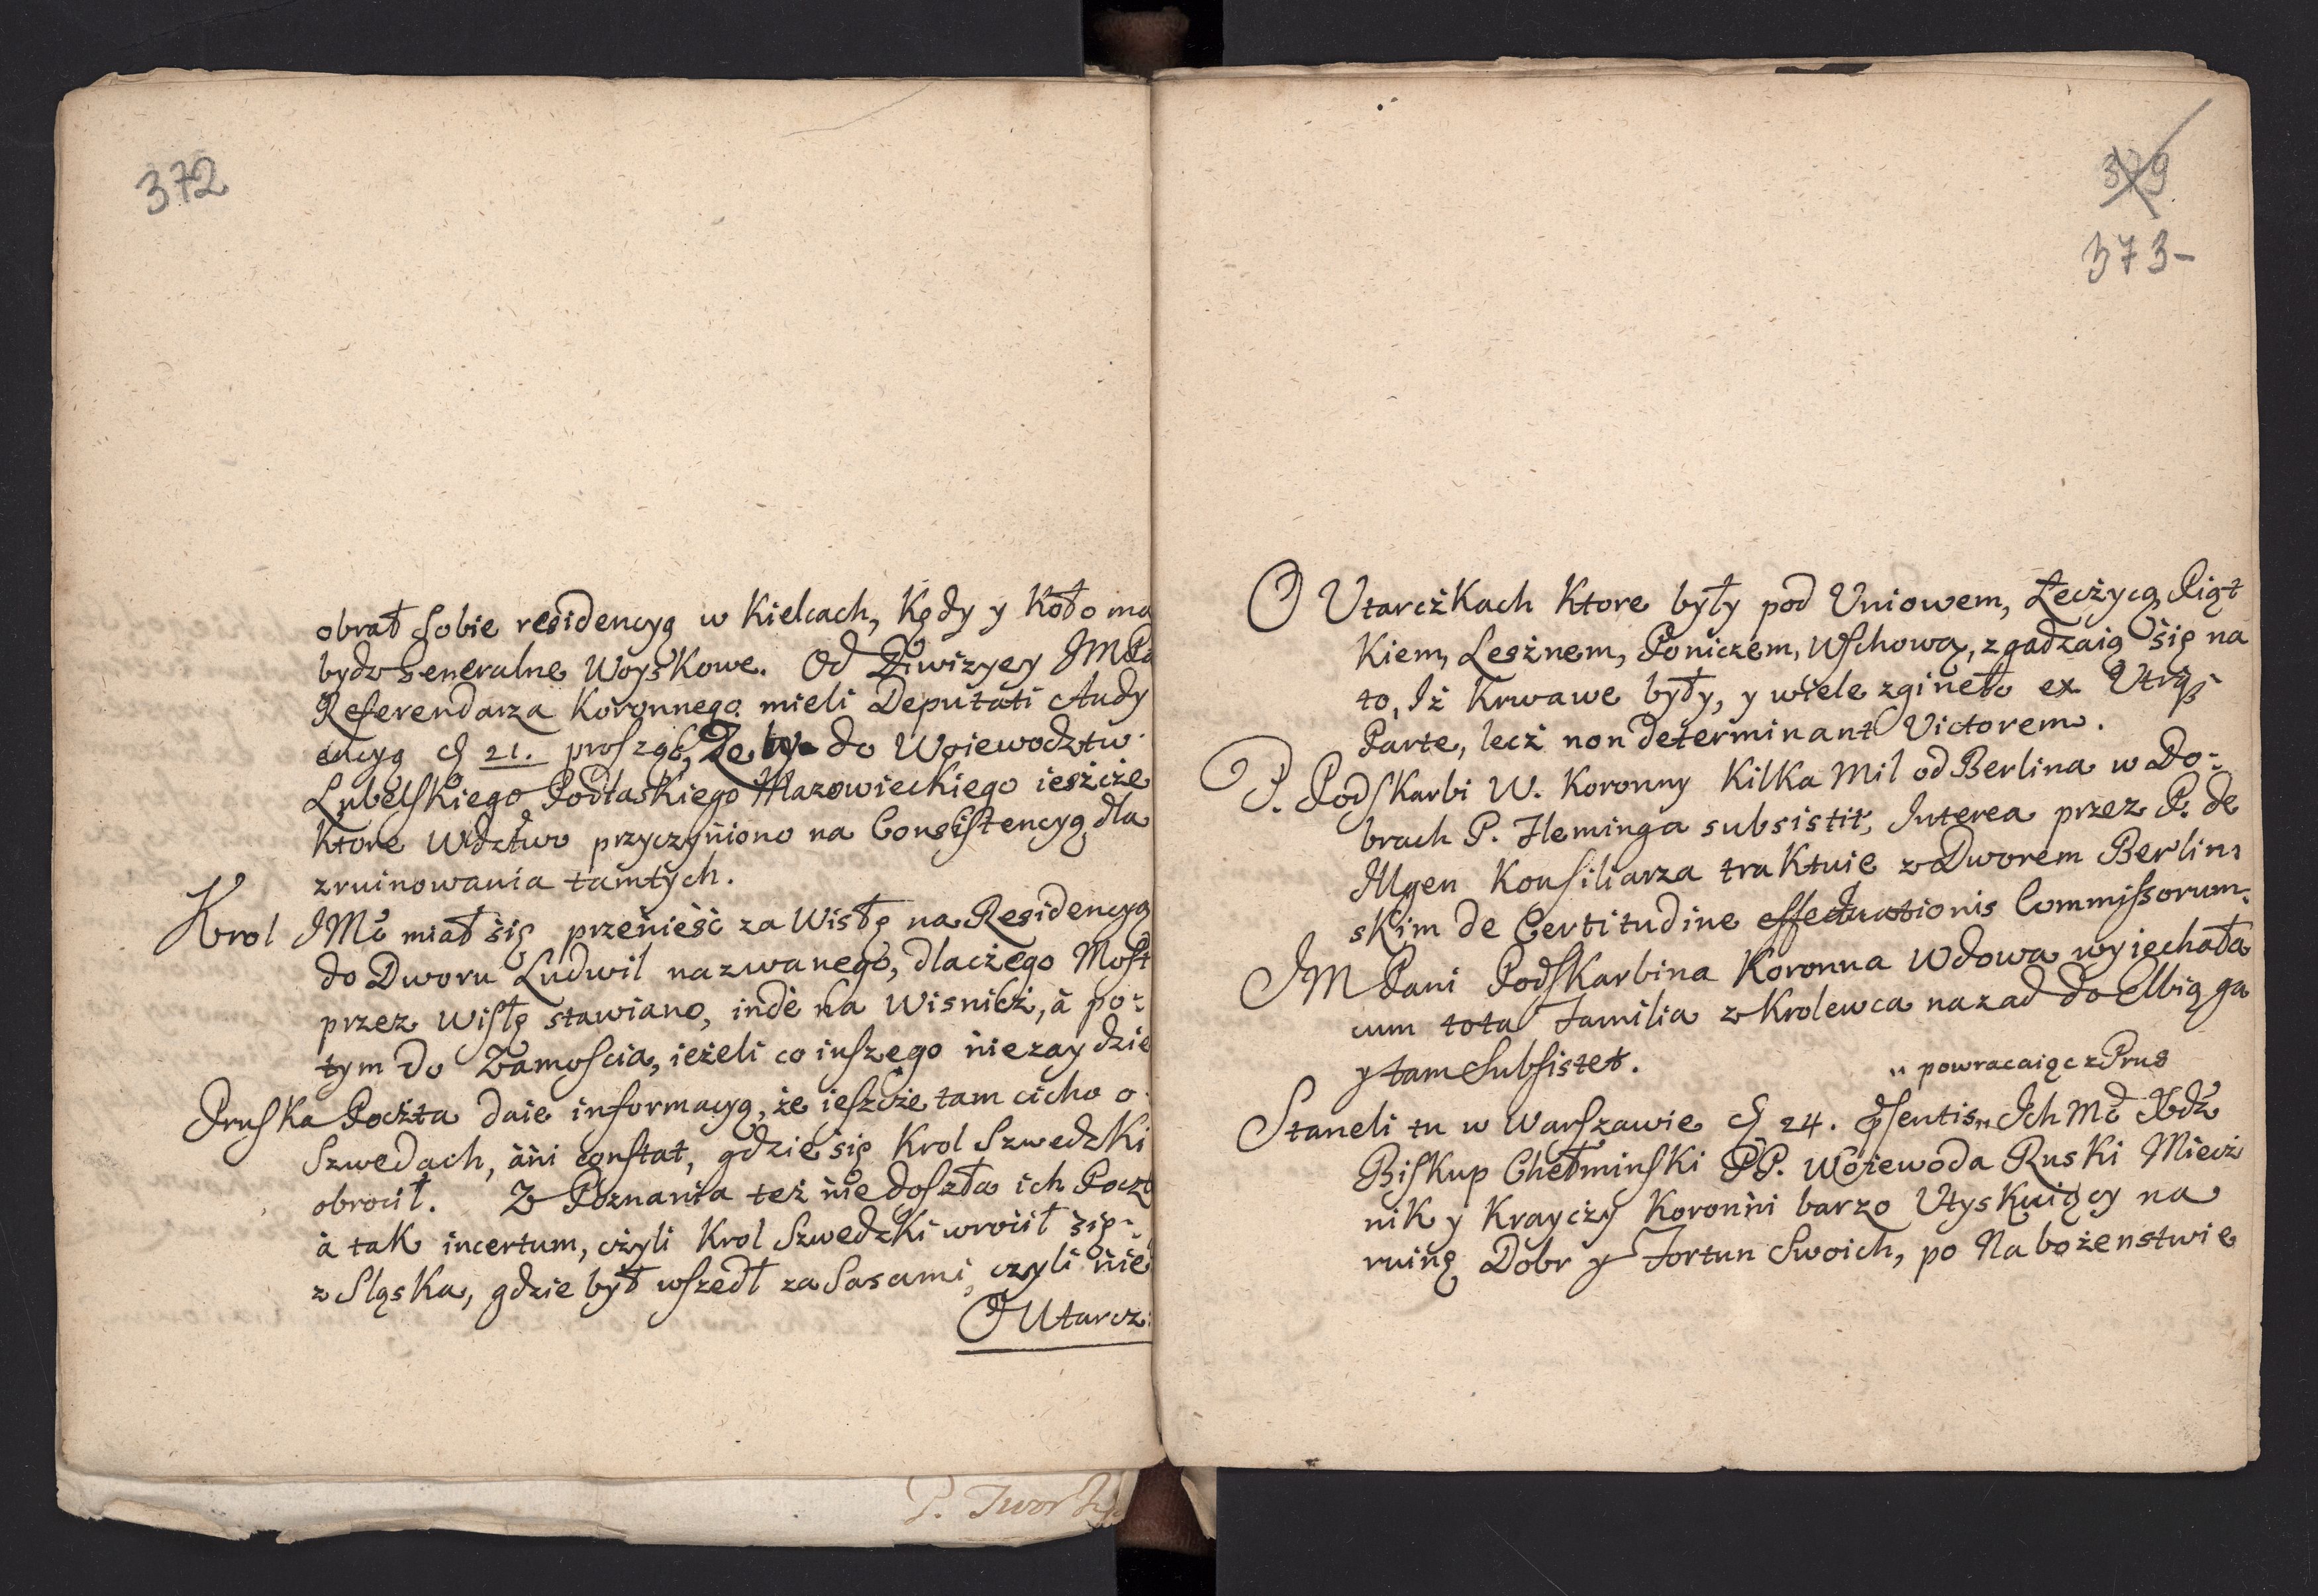 372
obrał sobie residencyą w Kielcach, Kędy y Koło ma
bydz Generalne Woyskowe. Od Diwizyey JMPa
Referendarza Koronnego mieli Deputati Audy
encyą 21. prosząc, Zeby do Woiewodztw
Lubelskiego Podlaskiego Mazowieckiego ieszcże
Ktore Wdztwo przyczyniono na Consistencyą dla
zruinowania tamtych.
Krol JMć miał się przenieść za Wisłę na Residencyą
do Dworu Ludwil nazwanego, dlaczego Most
przez Wisłę stawiano, inde na Wisnicż, à po-
tym do Zamoscia, ieżeli co inszego niezaydzie
Pruska Pocżta daie informacyą, że ieszcże tam cicho o
Szwedach, ani constat, gdzie się Krol Szwedzki
obrocił. Z Poznania też nie doszła ich Poczt
à tak incertum, czyli Krol Szwedzki wrocił się
z Sląska, gdzie był wszedł za Sasami, czyli nie
O Utarcz:
P.
379
373-
O Utarcżkach Ktore były pod Uniowem, Łecżycą Piąt
Kiem, Lesżnem, Poniczem, Wschową, zgadzaią się na
to, Iż Krwawe były, y wiele zgineło ex Utraqs
Parte, lecż non determinant Victorem.
P. Podskarbi W. Koronny Kilka Mil od Berlina w Do-
brach P. Fleminga subsistit, Interea przez P. de
Ilgen Konsiliarza traktuie z Dworem Berlin-
skim de Certitudine effectuationis Commissorum.
JM Pani Podskarbina Koronna Wdowa wyiechała
cum tota Familia z Krolewca nazad do Elbiąga
y tam Subsistet.
" powracaiąc z Prus
Staneli tu w Warszawie 24. psentis " Ich Mć Xdz
Biskup Chełminski PP. Woiewoda Ruski Miecż
nik y Kraycży Koronni barzo Utyskuiący na
ruinę Dobr y Fortun Swoich, po Nabożenstwie